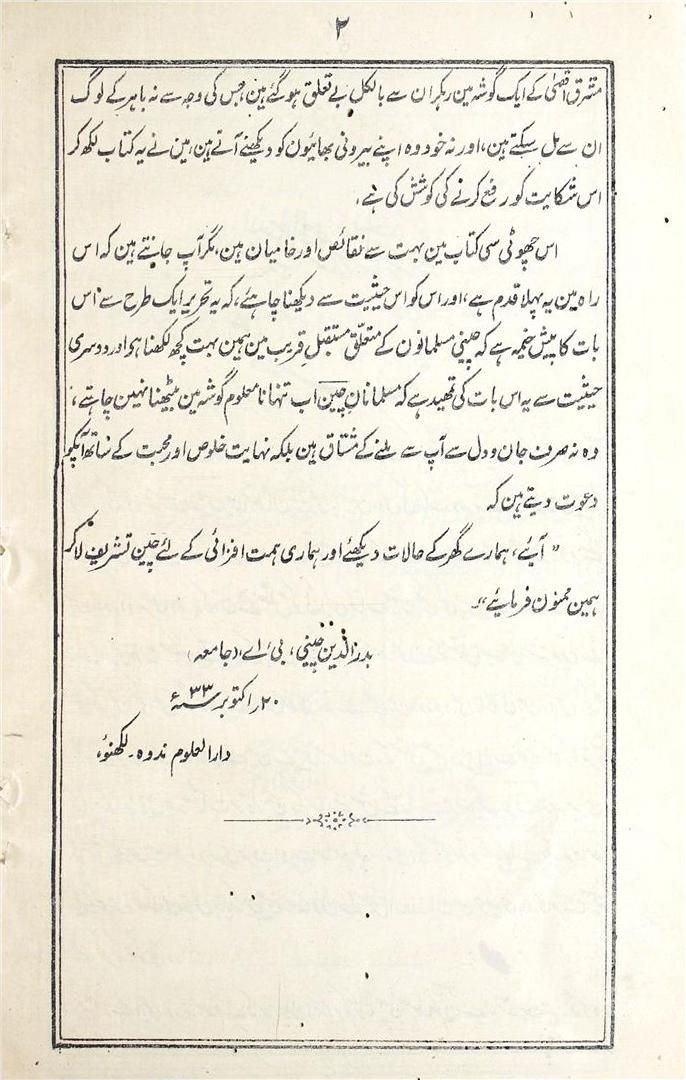 ۲
مشرق اقصیٰ کے ایک گوشہ مین رہکر ان سے بالکل بے تعلق ہو گئے ہین، جس کی وجہ سے نہ باہر کے لوگ
ان سے مل سکتے ہین، اور نہ خود وہ اپنے بیرونی بھائیون کو دیکھنے آتے ہین، مین نے یہ کتاب لکھ کر
اس شکایت کو رفع کرنے کی کوشش کی ہے،
اس چھوٹی سی کتاب مین بہت سے نقائص اور خامیان ہین، مگر آپ جانتے ہین کہ اس
راہ مین یہ پہلا قدم ہے، اور اس کو اس حیثیت سے دیکھنا چاہئے، کہ یہ تحریر ایک طرح سے اس
بات کا پیش خیمہ ہے کہ چینی مسلمانون کے متعلق مستقبل قریب مین ہمین بہت کچھ لکھنا ہو اور دوسری
حیثیت سے یہ اس بات کی تمہید ہے کہ مسلمانانِ چین اب تنہا نا معلوم گوشہ مین بیٹھنا نہین چاہتے،
وہ نہ صرف جان و دل سے آپ سے ملنے کے مشتاق ہین بلکہ نہایت خلوص اور محبت کے ساتھ آپکو
دعوت دیتے ہین کہ
”آیئے، ہمارے گھر کے حالات دیکھئے اور ہماری ہمت افزائی کے لئے چین تشریف لا کر
ہمین ممنون فرمایئے“۔
بدرالدین چینی، بی اے، (جامعہ)
۲۰؍ اکتوبر ۳۳ء
دارالعلوم ندوہ۔ لکھنؤ،